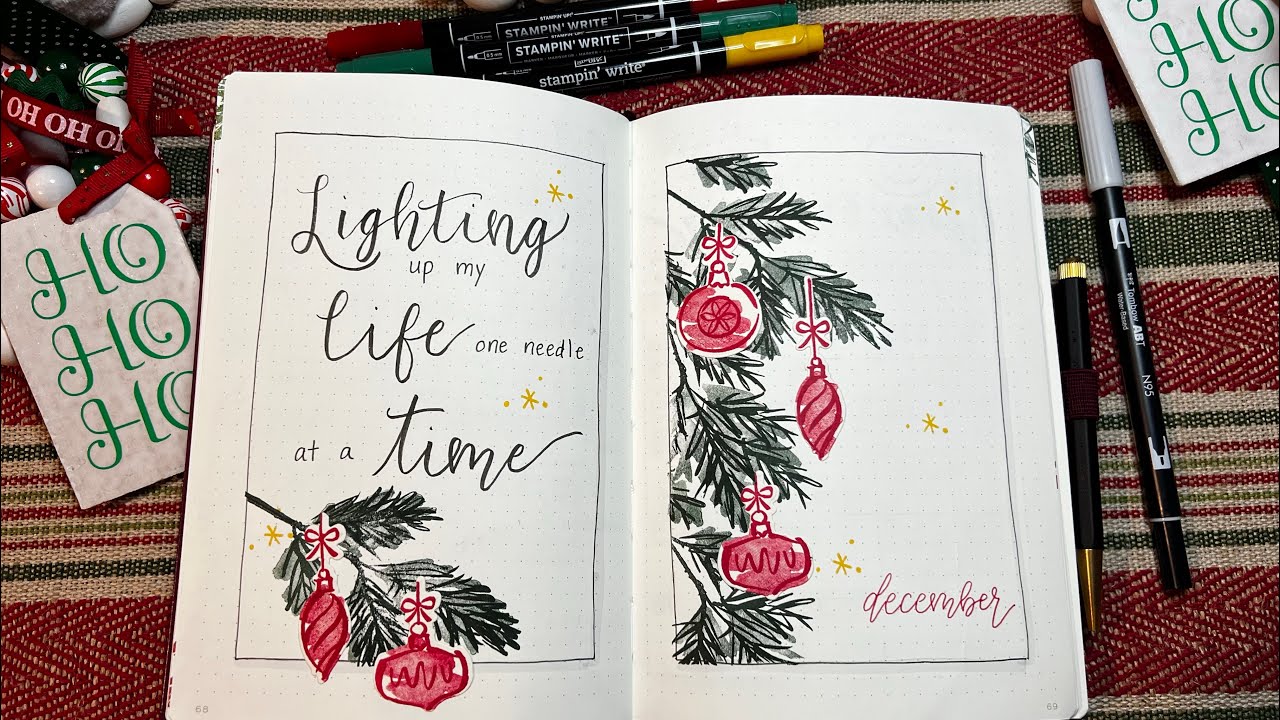 STAMPIN' WRITE™
STAMPIN' WRITE™
stampin' write®
HO HO HO
Lighting
up my
life one needle
at a time
HO
HO
HO
december
68
69
HO
HO
Tombow ABT
Water-Based
N95